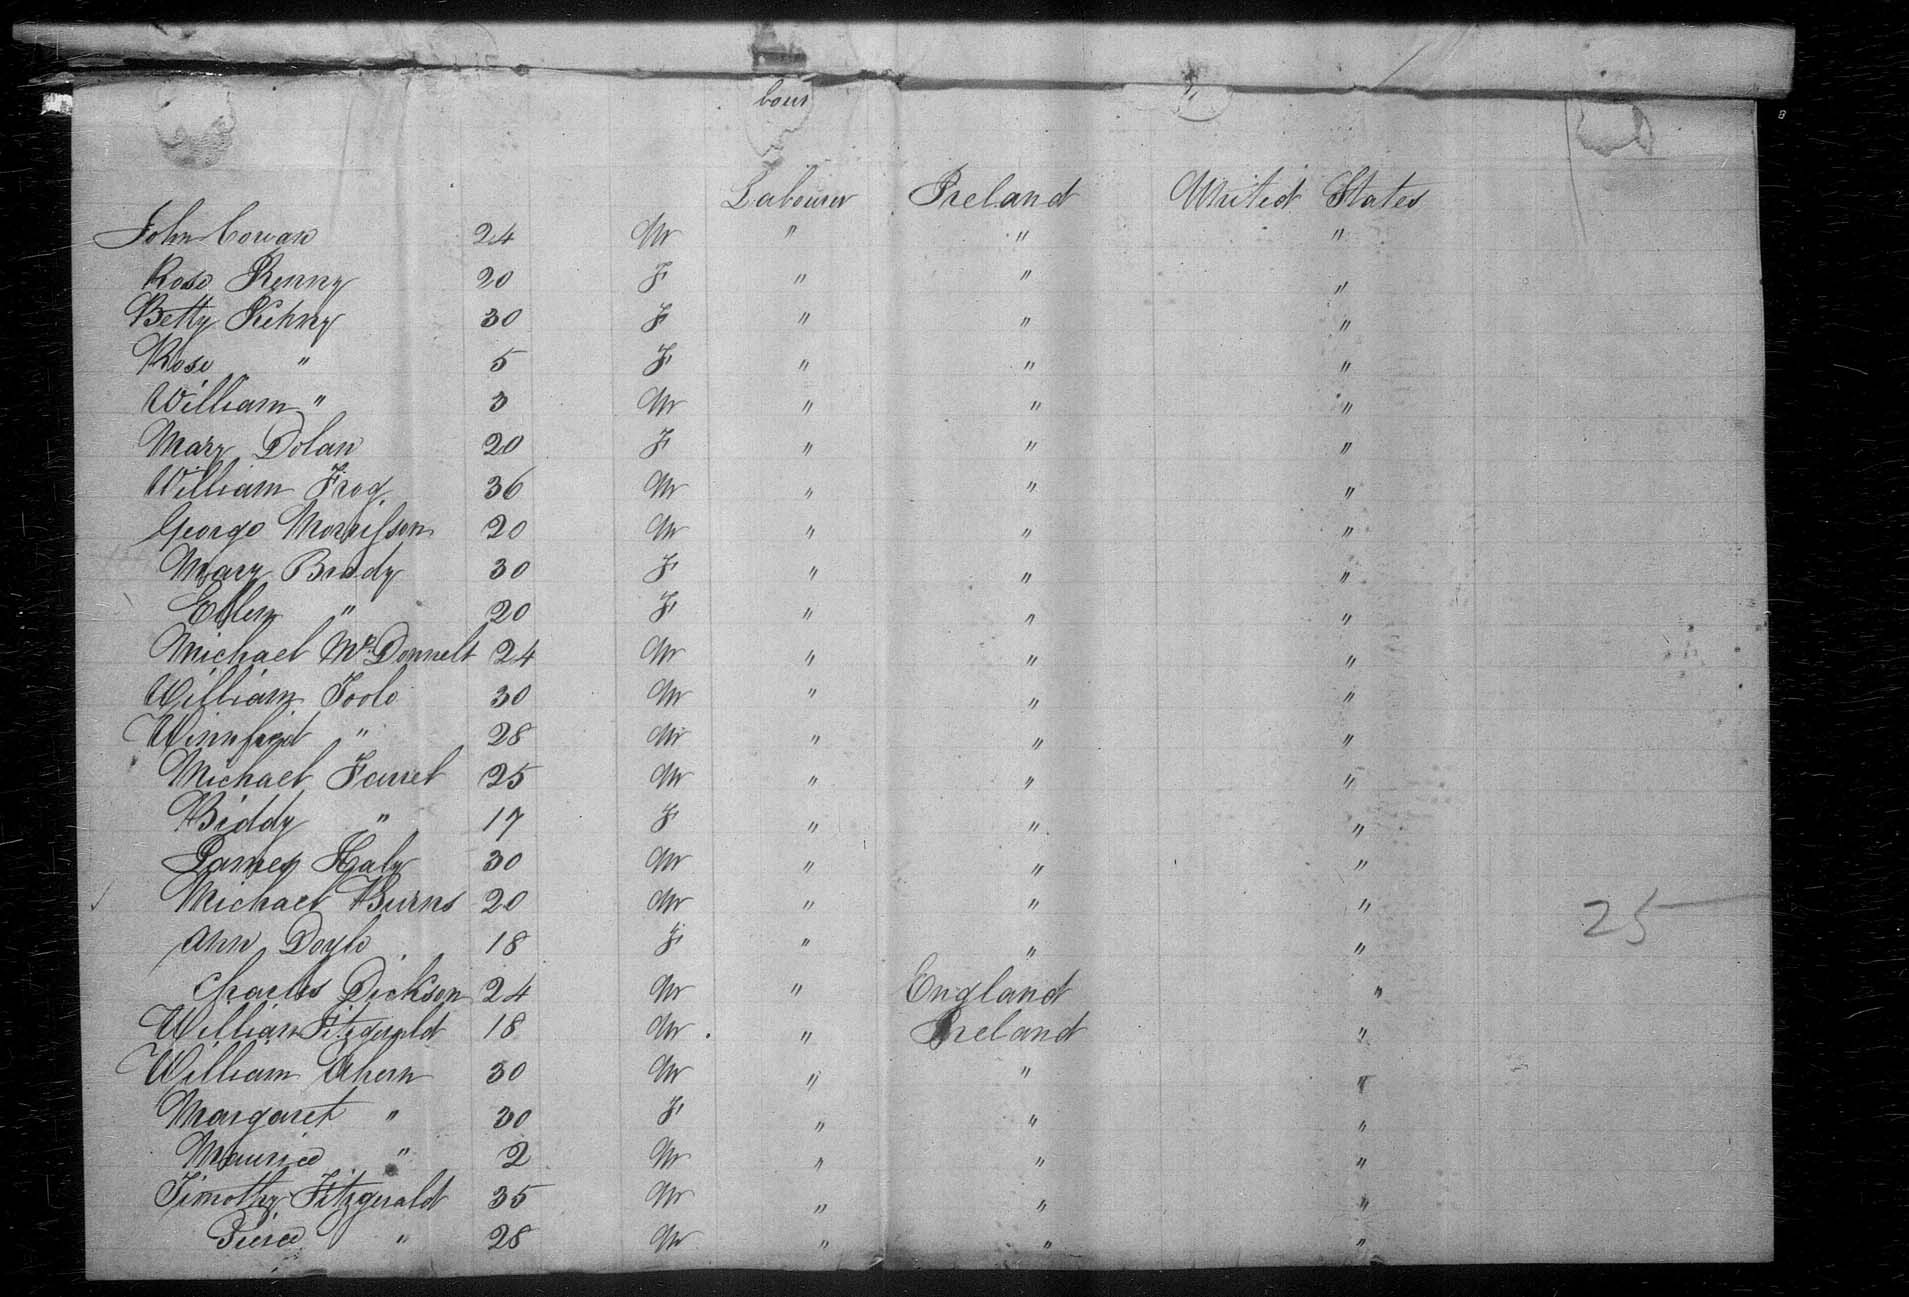 bour
Labourer Ireland United States
John Cowan 24 M " " "
Rose Kenny 20 F " " "
Betty Kehny 30 F " " "
Rose " 5 F " " "
William " 3 M " " "
Mary Dolan 20 F " " "
William 36 M " " "
George Morrisson 20 M " " "
Mary Brady 30 F " " "
Ellen " 20 F " " "
Michael McDonnell 24 M " " "
William Toole 30 M " " "
Winnfred " 28 M " " "
Michael Farrel 25 M " " "
Biddy " 17 F " " "
James Haly 30 M " " "
Michael Burns 20 M " " "
25
Ann Doyle 18 F " " "
Charles Dickson 24 M " England "
William Fitzgerald 18 M " Ireland "
William Ahern 30 M " " "
Margaret " 30 F " " "
Maurice " 2 M " " "
Timothy Fitzgerald 35 M " " "
Pierce " 28 M " " "